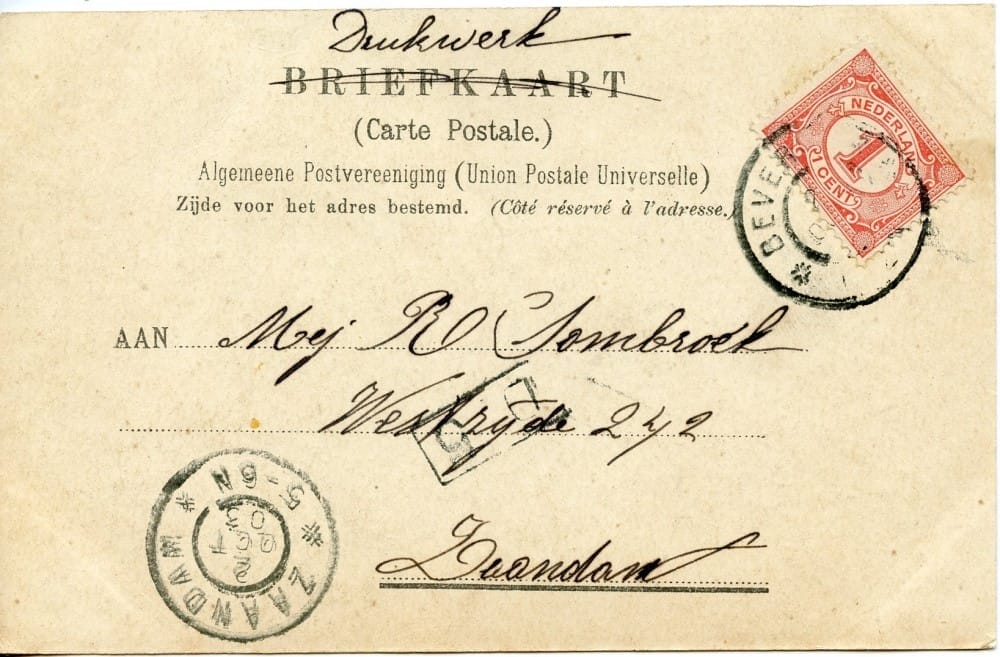 Drukwerk
BRIEFKAART
(Carte Postale.)
Algemeene Postvereeniging (Union Postale Universelle)
Zijde voor het adres bestemd. (Côté réservé à l'adresse.)
NEDERLAND
1
1 CENT
* BEVER
AAN Mej R Sombroek
Westzijde 242
Zaandam
* ZAANDAM *
5-6N